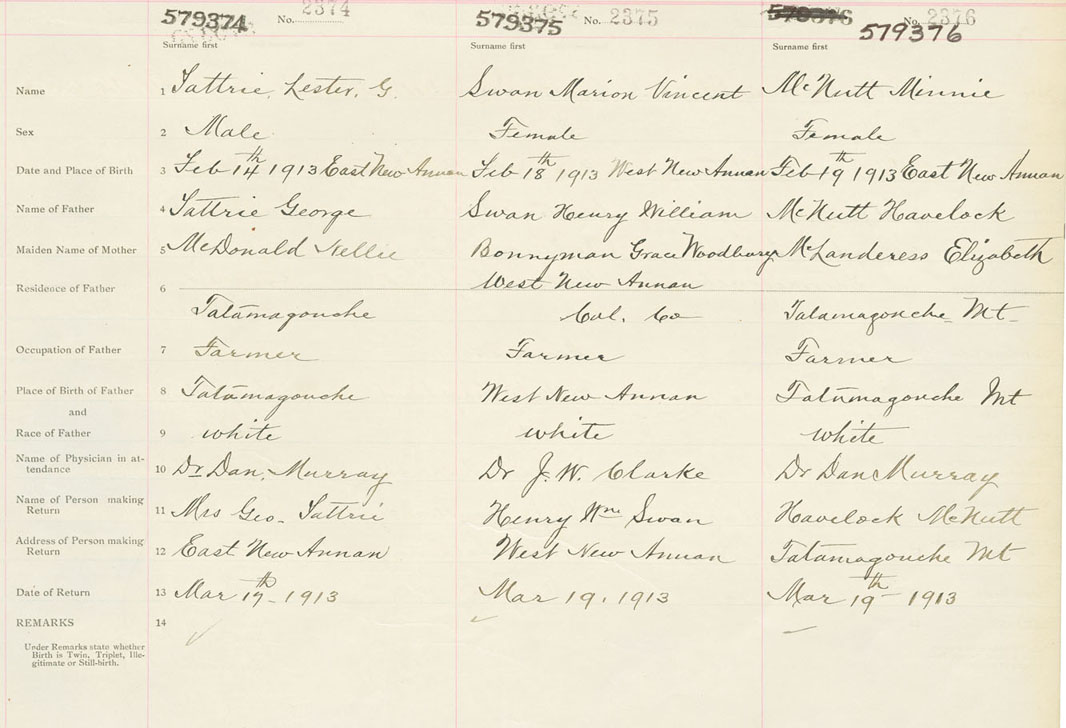 579374 No. 2374 579375 No. 2375 No. 2376 579376
Surname first Surname first Surname first
Name 1 Tattrie, Lester, G. Swan Marion Vincent McNutt Minnie
Sex 2 Male Female Female
Date and Place of Birth 3 Feb 14th 1913 East New Annan Feb 18th 1913 West New Annan Feb 19th 1913 East New Annan
Name of Father 4 Tattrie George Swan Henry William McNutt Havelock
Maiden Name of Mother 5 McDonald Nellie Bonnyman Grace Woodbury Elizabeth
West New Annan
Residence of Father 6
Tatamagouche Col. Co Tatamagouche Mt
Occupation of Father 7 Farmer Farmer Farmer
Place of Birth of Father 8 Tatamagouche West New Annan Tatamagouche Mt
and
Race of Father 9 white white white
Name of Physician in at-
tendance 10 Dr Dan. Murray Dr J. W. Clarke Dr Dan Murray
Name of Person making
Return 11 Mrs Geo. Tattrie Henry Wm Swan Havelock McNutt
Address of Person making
Return 12 East New Annan West New Annan Tatamagouche Mt
Date of Return 13 Mar 17th 1913 Mar 19. 1913 Mar 19th 1913
REMARKS 14
Under Remarks state whether
Birth is Twin, Triplet, Ille-
gitimate or Still-birth.